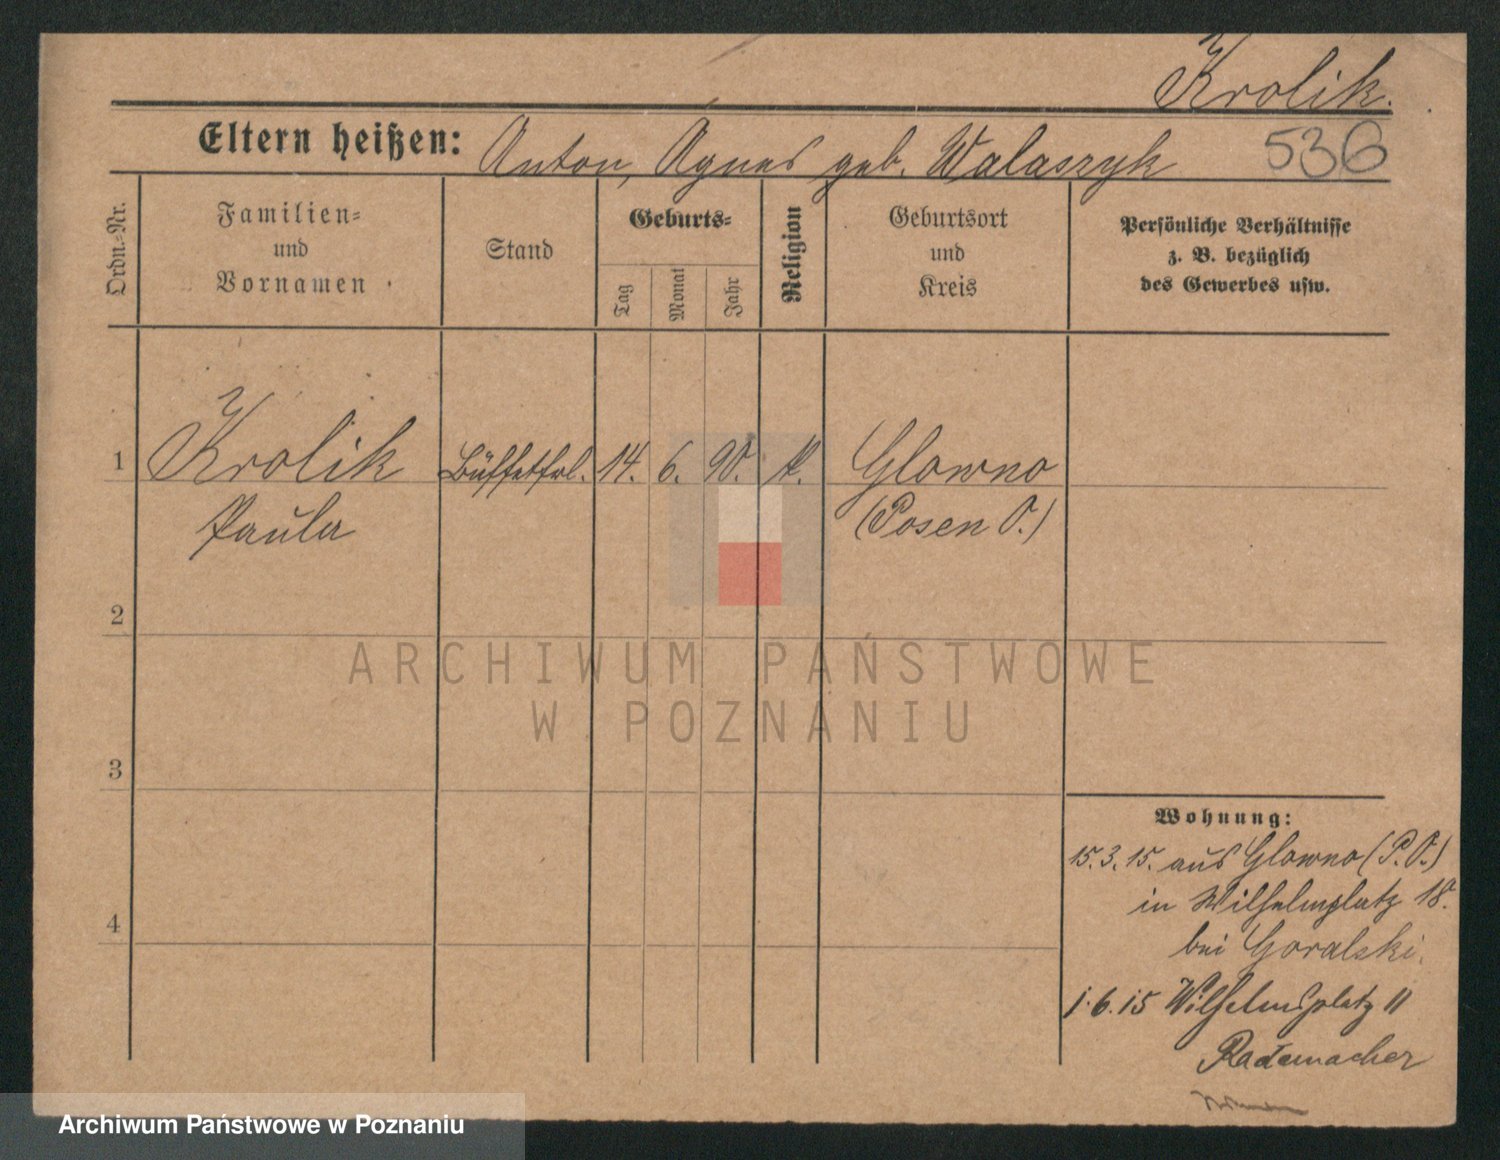 Krolik.
Eltern heißen: Anton, Agnes geb. Walaszyk 536
Ordn.=Nr.
Familien=
und
Vornamen
Stand
Geburts=
Tag
Monat
Jahr
Religion
Geburtsort
und
Kreis
Persönliche Verhältnisse
z. B. bezüglich
des Gewerbes usw.
1 Krolik Büffetfrl. 14. 6. 90. k. Glowno
Paula (Posen O.)
2
ARCHIWUM PAŃSTWOWE
W POZNANIU
3
Wohnung:
15.3.15. aus Glowno (P.O.)
in Wilhelmplatz 18.
4
bei Goralski.
1.6.15 Wilhelmsplatz 11
Rademacher
Archiwum Państwowe w Poznaniu